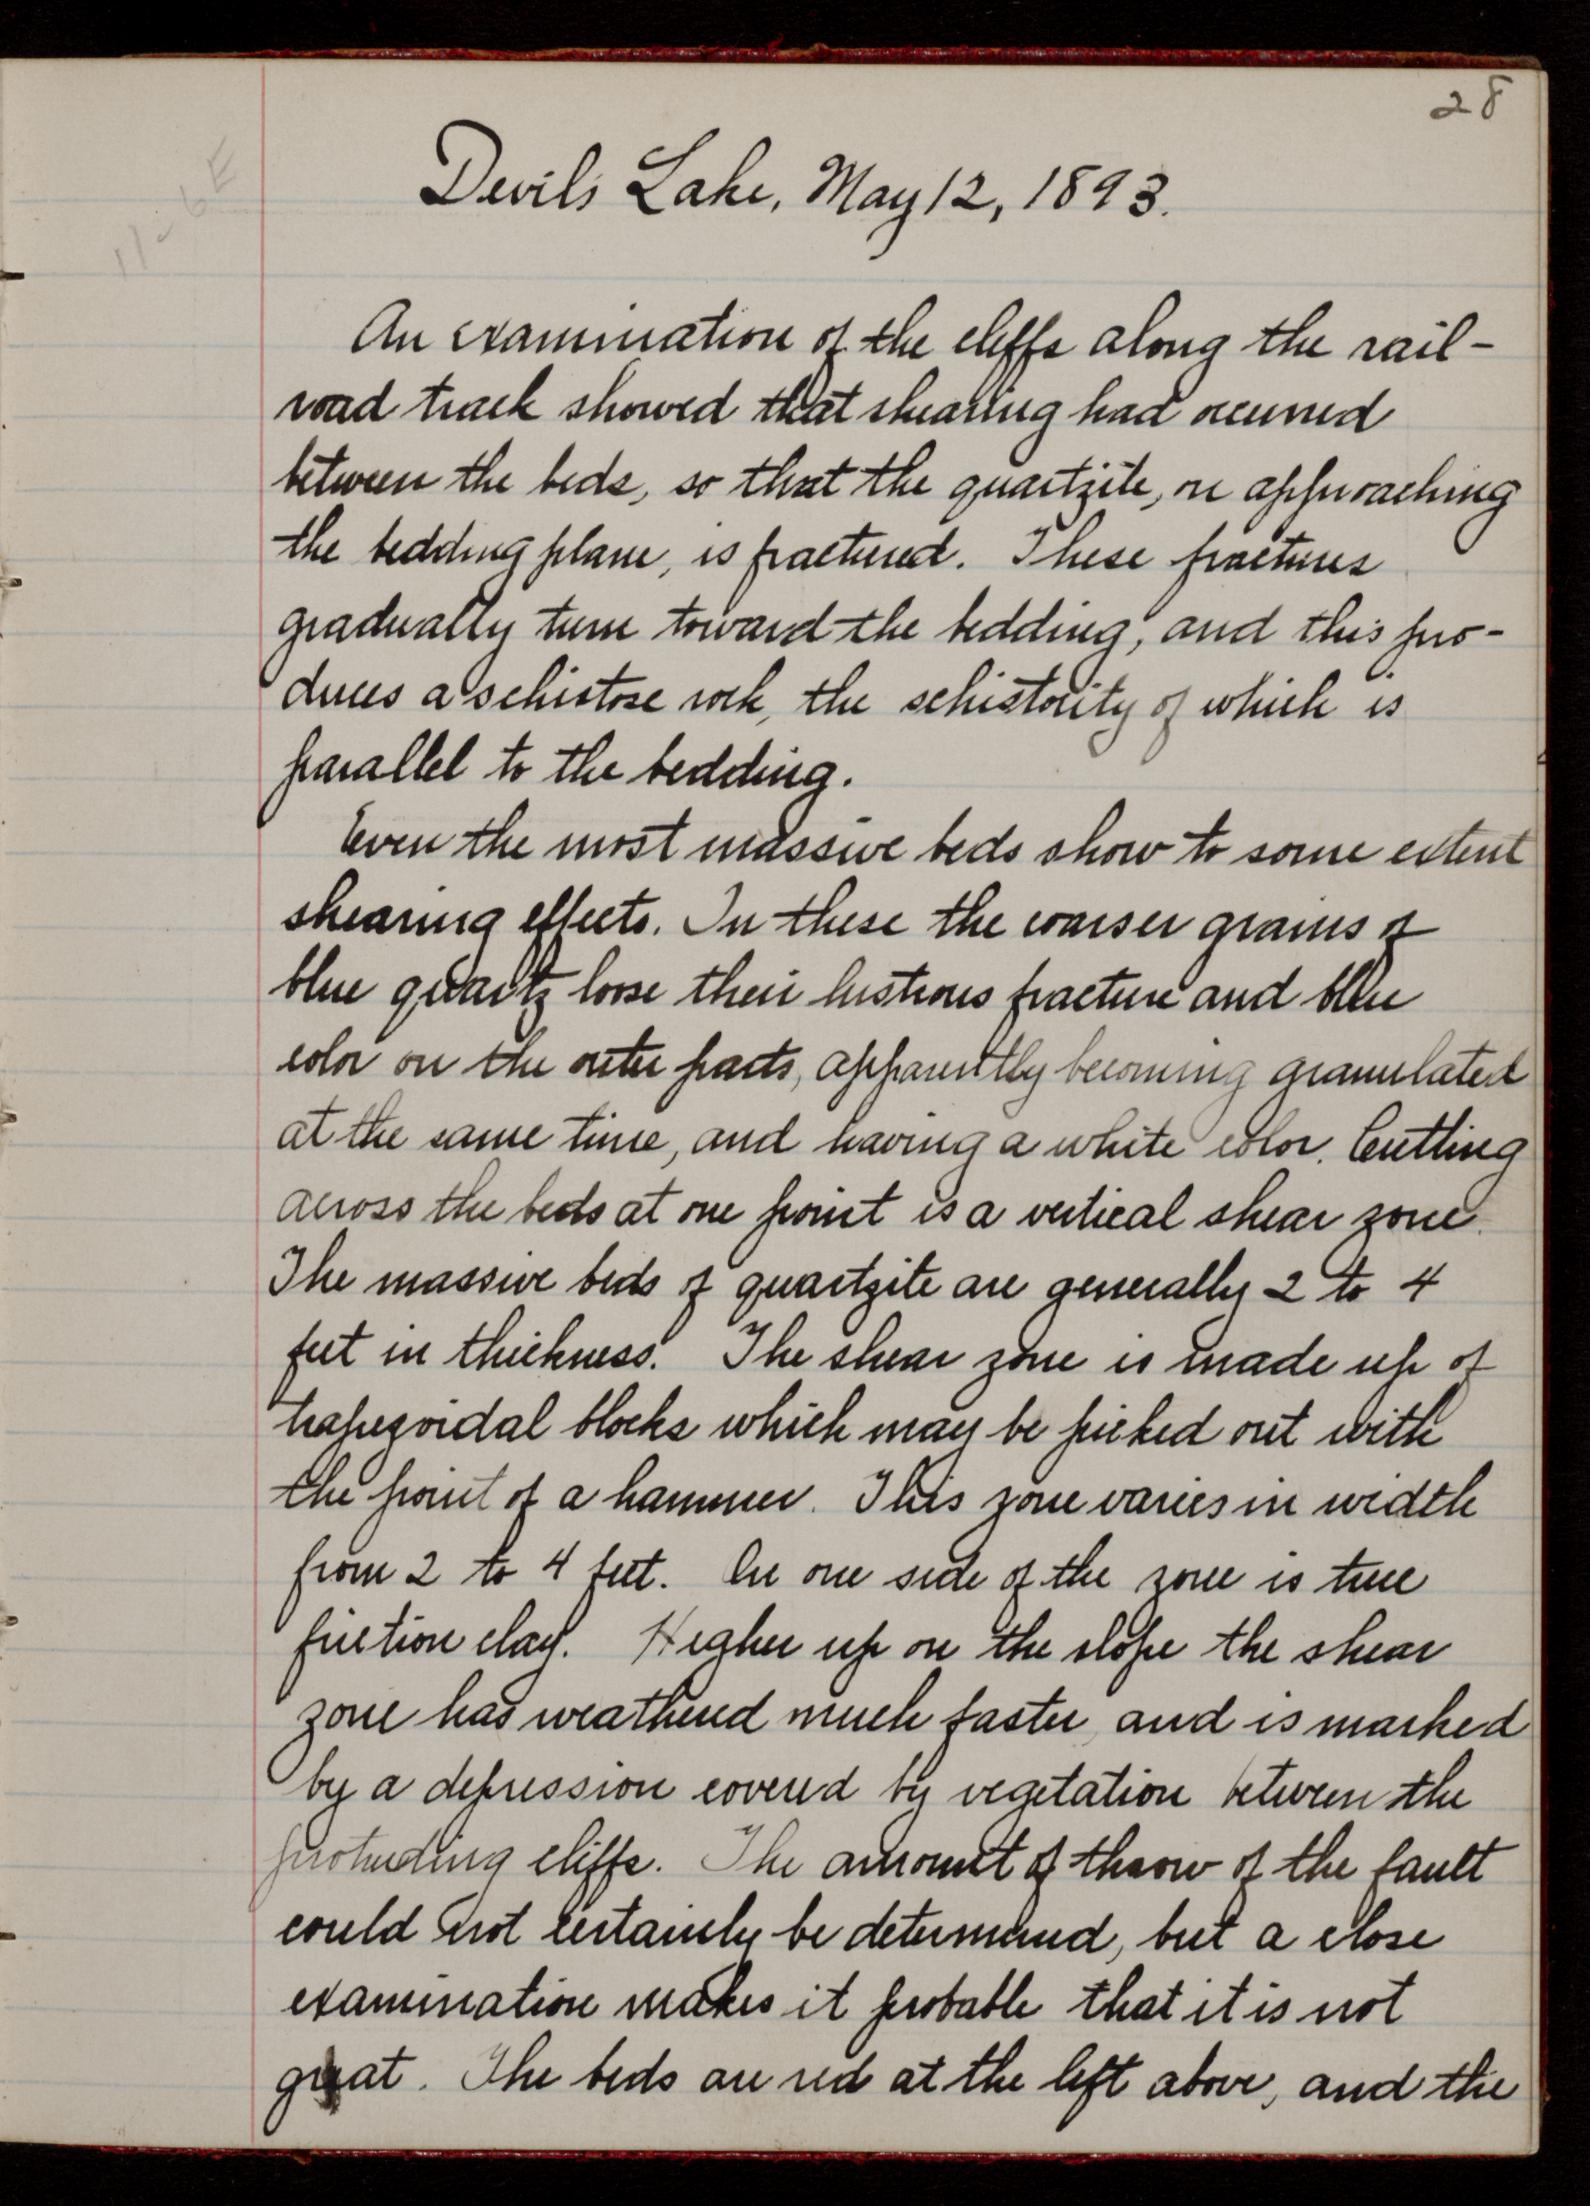 28
11-6E
Devils Lake, May 12, 1893.
An examination of the cliffs along the rail-
road track showed that shearing had occurred
between the beds, so that the quartzite, on approaching
the bedding plane, is fractured. These fractures
gradually turn toward the bedding, and this pro-
duces a schistose rock, the schistosity of which is
parallel to the bedding.
Even the most massive beds show to some extent
shearing effects. In these the coarser grains of
blue quartz loose their lustrous fracture and blue
color on the outer parts, apparently becoming granulated
at the same time, and having a white color. Cutting
across the beds at one point is a vertical shear zone.
The massive beds of quartzite are generally 2 to 4
feet in thickness. The shear zone is made up of
trapezoidal blocks which may be picked out with
the point of a hammer. This zone varies in width
from 2 to 4 feet. On one side of the zone is true
friction clay. Higher up on the slope the shear
zone has weathered much faster, and is marked
by a depression covered by vegetation between the
protruding cliffs. The amount of throw of the fault
could not certainly be determined, but a close
examination makes it probable that it is not
great. The beds are red at the left above, and the